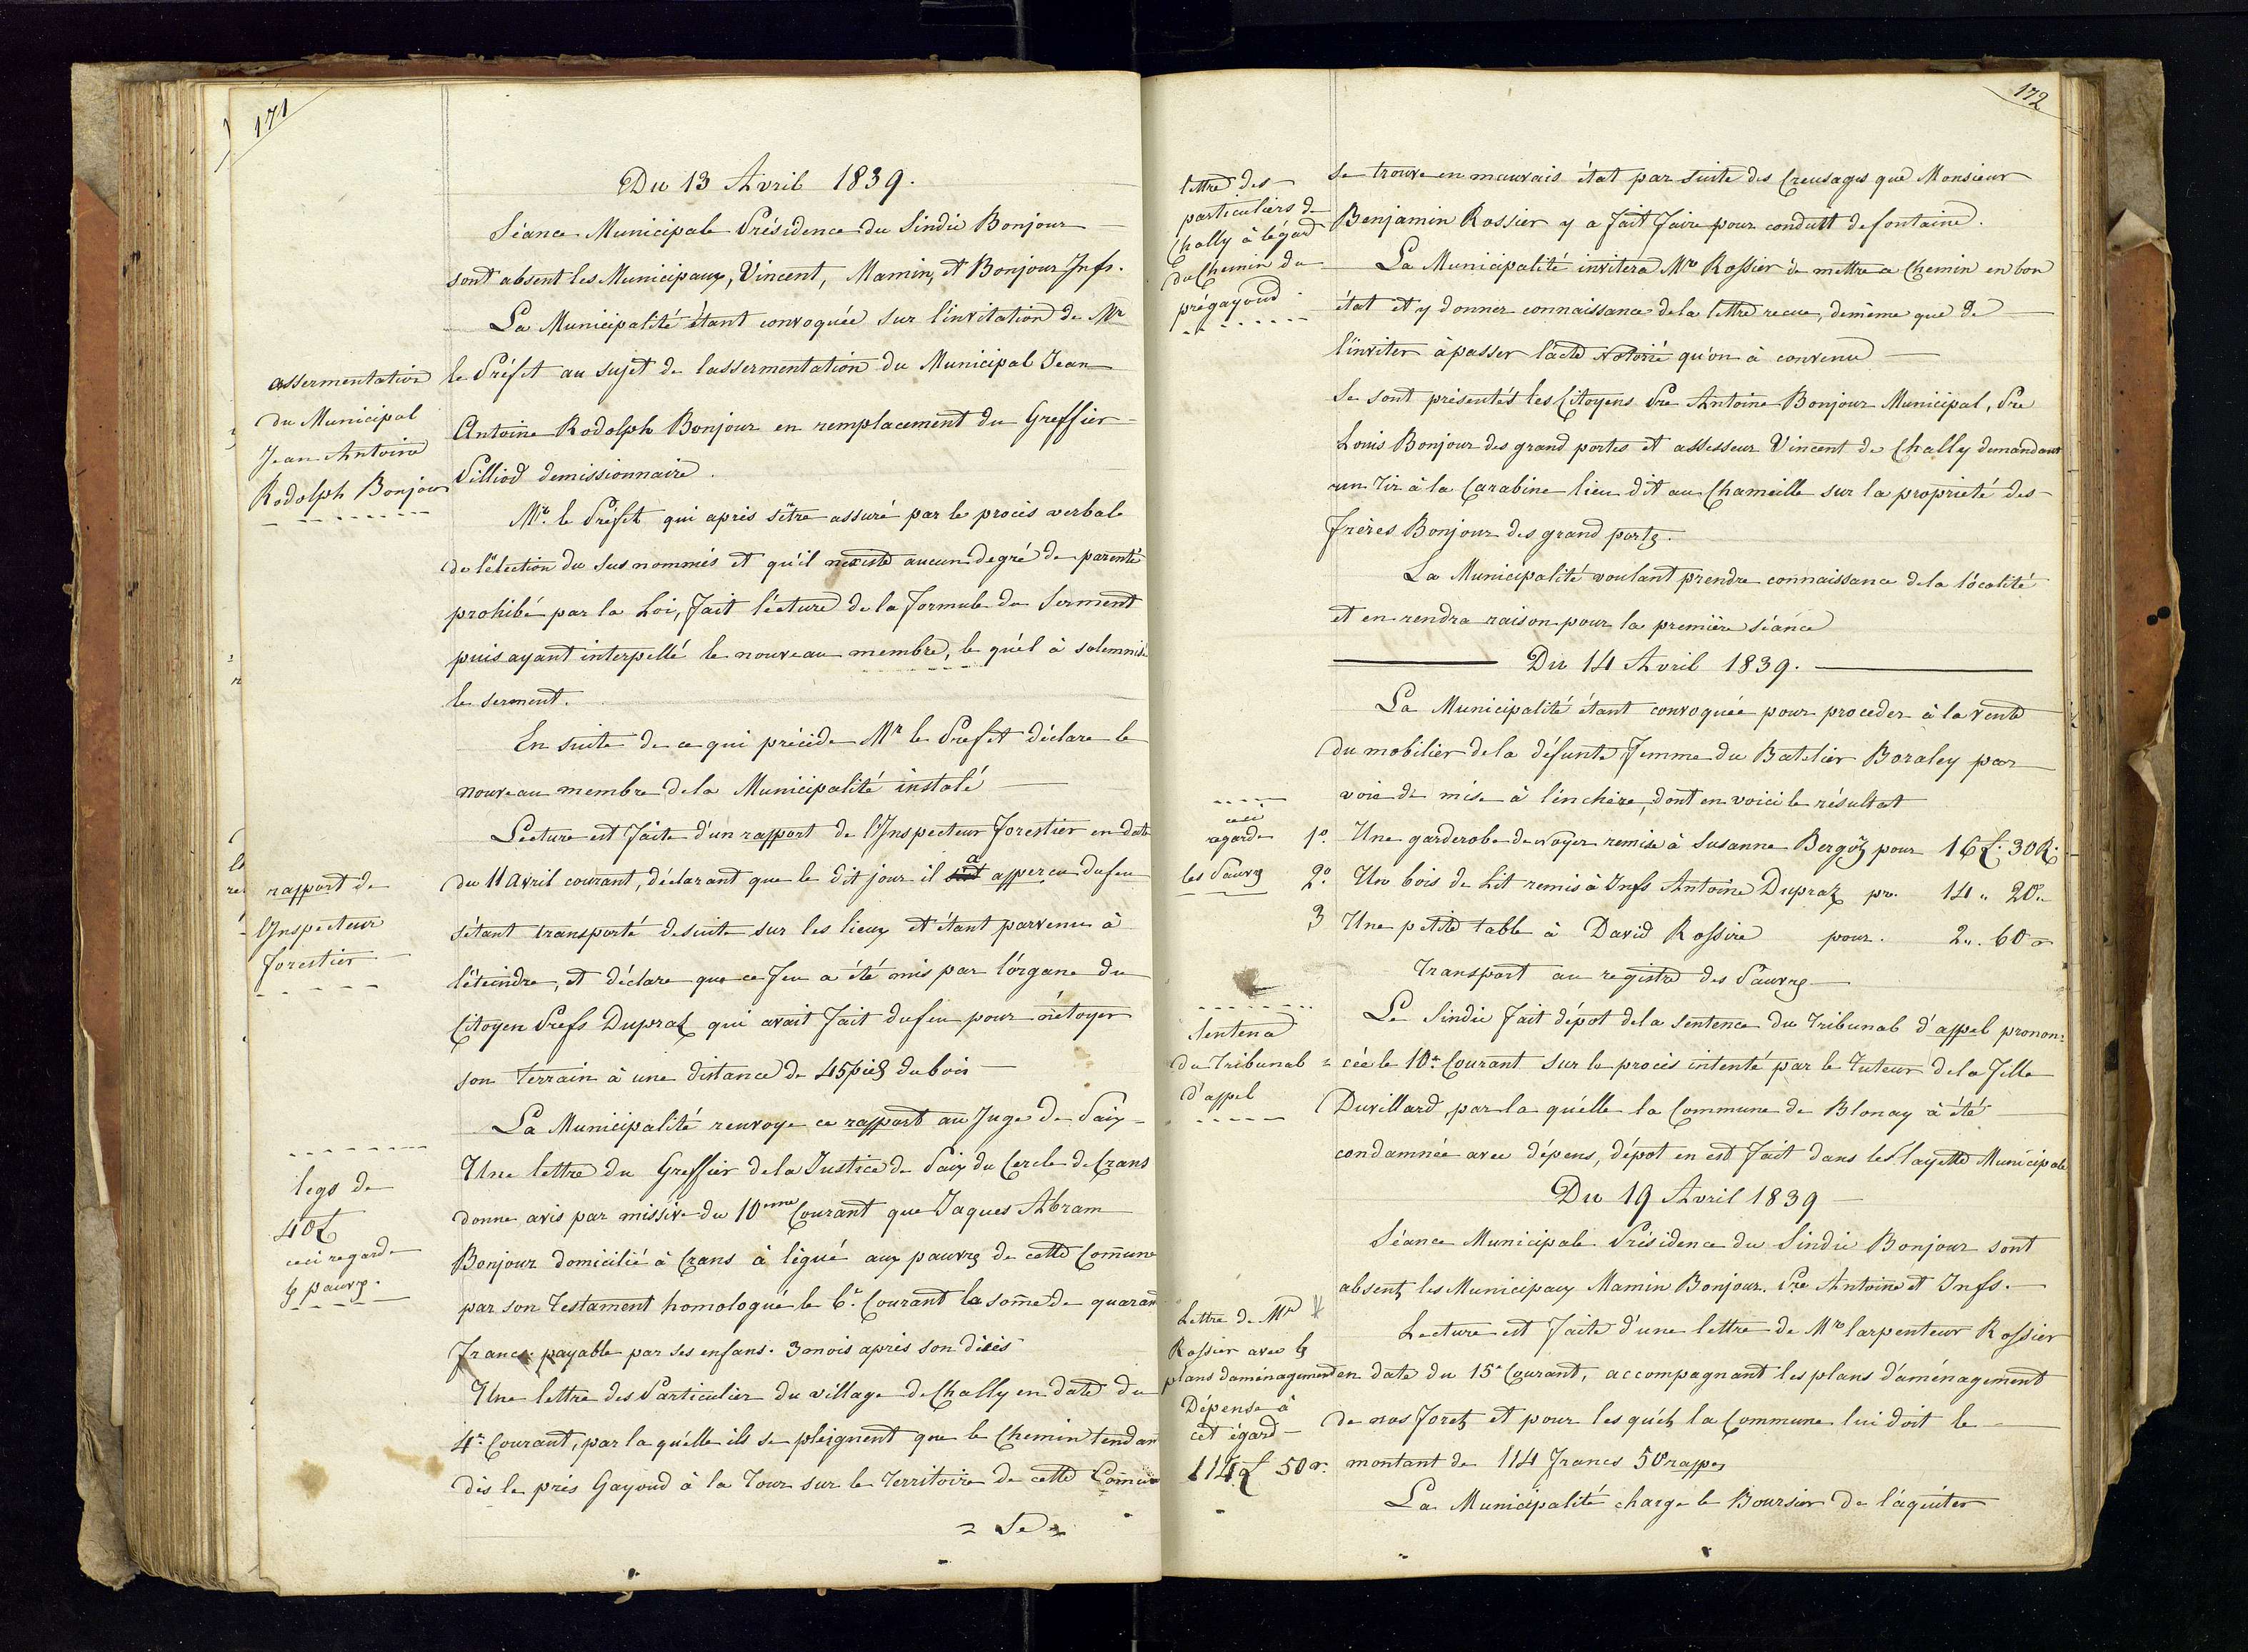 171
Du 13 Avril 1839.
Séance Municipale Présidence du Sindic Bonjour
sont absent les Municipaux, Vincent, Mamin, et Bonjour Jnfs.
La Municipalité étant convoquée sur l'invitation de Mr
assermentation
du Municipal
Jean Antoine
Rodolph Bonjour
le Préfet au sujet de lassermentation du Municipal Jean
Antoine Rodolph Bonjour en remplacement du Greffier
Pilliod demissionnaire.
Mr. le Préfet qui après s'être assuré par le procès verbale
de l'élection du sus nommés et qu'il nexiste aucun degré de parenté
prohibé par la Loi, fait lécture de la formule du Serment
puis ayant interpellé le nouveau membre, le quél à solemnisé
le serment.
En suite de ce qui précède Mr le Prefet déclare le
nouveau membre de la Municipalité instalé
rapport de
l'Jnspecteur
forestier
Lecture est faite d'un rapport de l'Jnspecteur forestier en date
du 11 avril courant, déclarant que le dit jour il a apperçu du feu
s'étant transporté desuite sur les lieux et étant parvenu à
l'éteindre, et déclare que ce feu a été mis par l'organe du
Citoyen Prefs Dupraz qui avait fait du feu pour nétoyer
son terrain à une distance de 45 piés du bois
La Municipalité renvoye ce rapport au Juge de Paix
legs de
40 £
ceci regarde
les pauvres.
Une lettre du Greffier de la Justice de Paix du Cercle de Crans
donne avis par missive du 10eme Courant que Jaques Abram
Bonjour domicilié à Crans à légué aux pauvres de cette Comune
par son Testament homologué le 6e. Courant la some de quarante
francs payable par ses enfans. 3 mois après son décès
Une lettre des Particulier du village de Chally en date du
4e. Courant, par la quélle ils se pleignent que le Chemin tendant
dès le prés Gayoud à la Tour sur le territoire de cette Comune
= Se =
172
lettre des
particuliers de
Chally à légard
du Chemin du
prégayoud
se trouve en mauvais état par suite des Creusages que Monsieur
Benjamin Rossier y a fait faire pour conduit de fontaine.
La Municipalité invitera Mr Rossier de mettre ce Chemin en bon
état et y donner connaissance de la lettre recue, demème que de
l'inviter àpasser l'acte Notorié qu'on à convenu
Se sont présentés les Citoyens Pre Antoine Bonjour Municipal, Pre
Louis Bonjour des grand portes et assesseur Vincent de Chally demandant
un Tir à la Carabine lieu dit au Chameille sur la proprieté des
frères Bonjour des grand portes.
La Municipalité voulant prendre connaissance de la lócalité
et en rendra raison pour la première séance
Du 14 Avril 1839.
La Municipalité étant convoquée pour proceder à la vente
du mobilier de la défunte femme du Batelier Boraley par
voie de mise à l'enchère, dont en voici le résultat
ceci
regarde
les Pauvres
1o. Une garderobe de noyer remise à Susanne Bergoz pour 16 £. 30 R.
2o. Un bois de Lit remis à Jnfs Antoine Dupraz pr. 14 " 20 "
3 Une petite table à David Rossire pour. 2 ". 60 "
Transport au registre des Pauvres
Sentence
du Tribunal
d'appel
Le Sindic fait dépot de la Sentence du Tribunal d'appel pronon=
=cée le 10e. Courant sur le procès intenté par le Tuteur de la fille
Duvillard, par la quélle la Commune de Blonay à été
condamnée avec dépens, dépot en est fait dans les layette Municipale
Du 19 Avril 1839
Séance Municipale Présidence du Sindic Bonjour sont
absents les Municipaux Mamin Bonjour. Pre Antoine et Jnfs.
Lettre de Mr
Rossier avec les
plans daménagement
Dépense à
cet égard
114 £ 50 r.
Lecture est faite d'une lettre de Mr larpenteur Rossier
en date du 15e Courant, accompagnant les plans d'aménagement
de nos forets et pour les quéls la Commune lui doit le
montant de 114 francs 50 rappes
La Municipalité charge le Boursier de l'aquiter